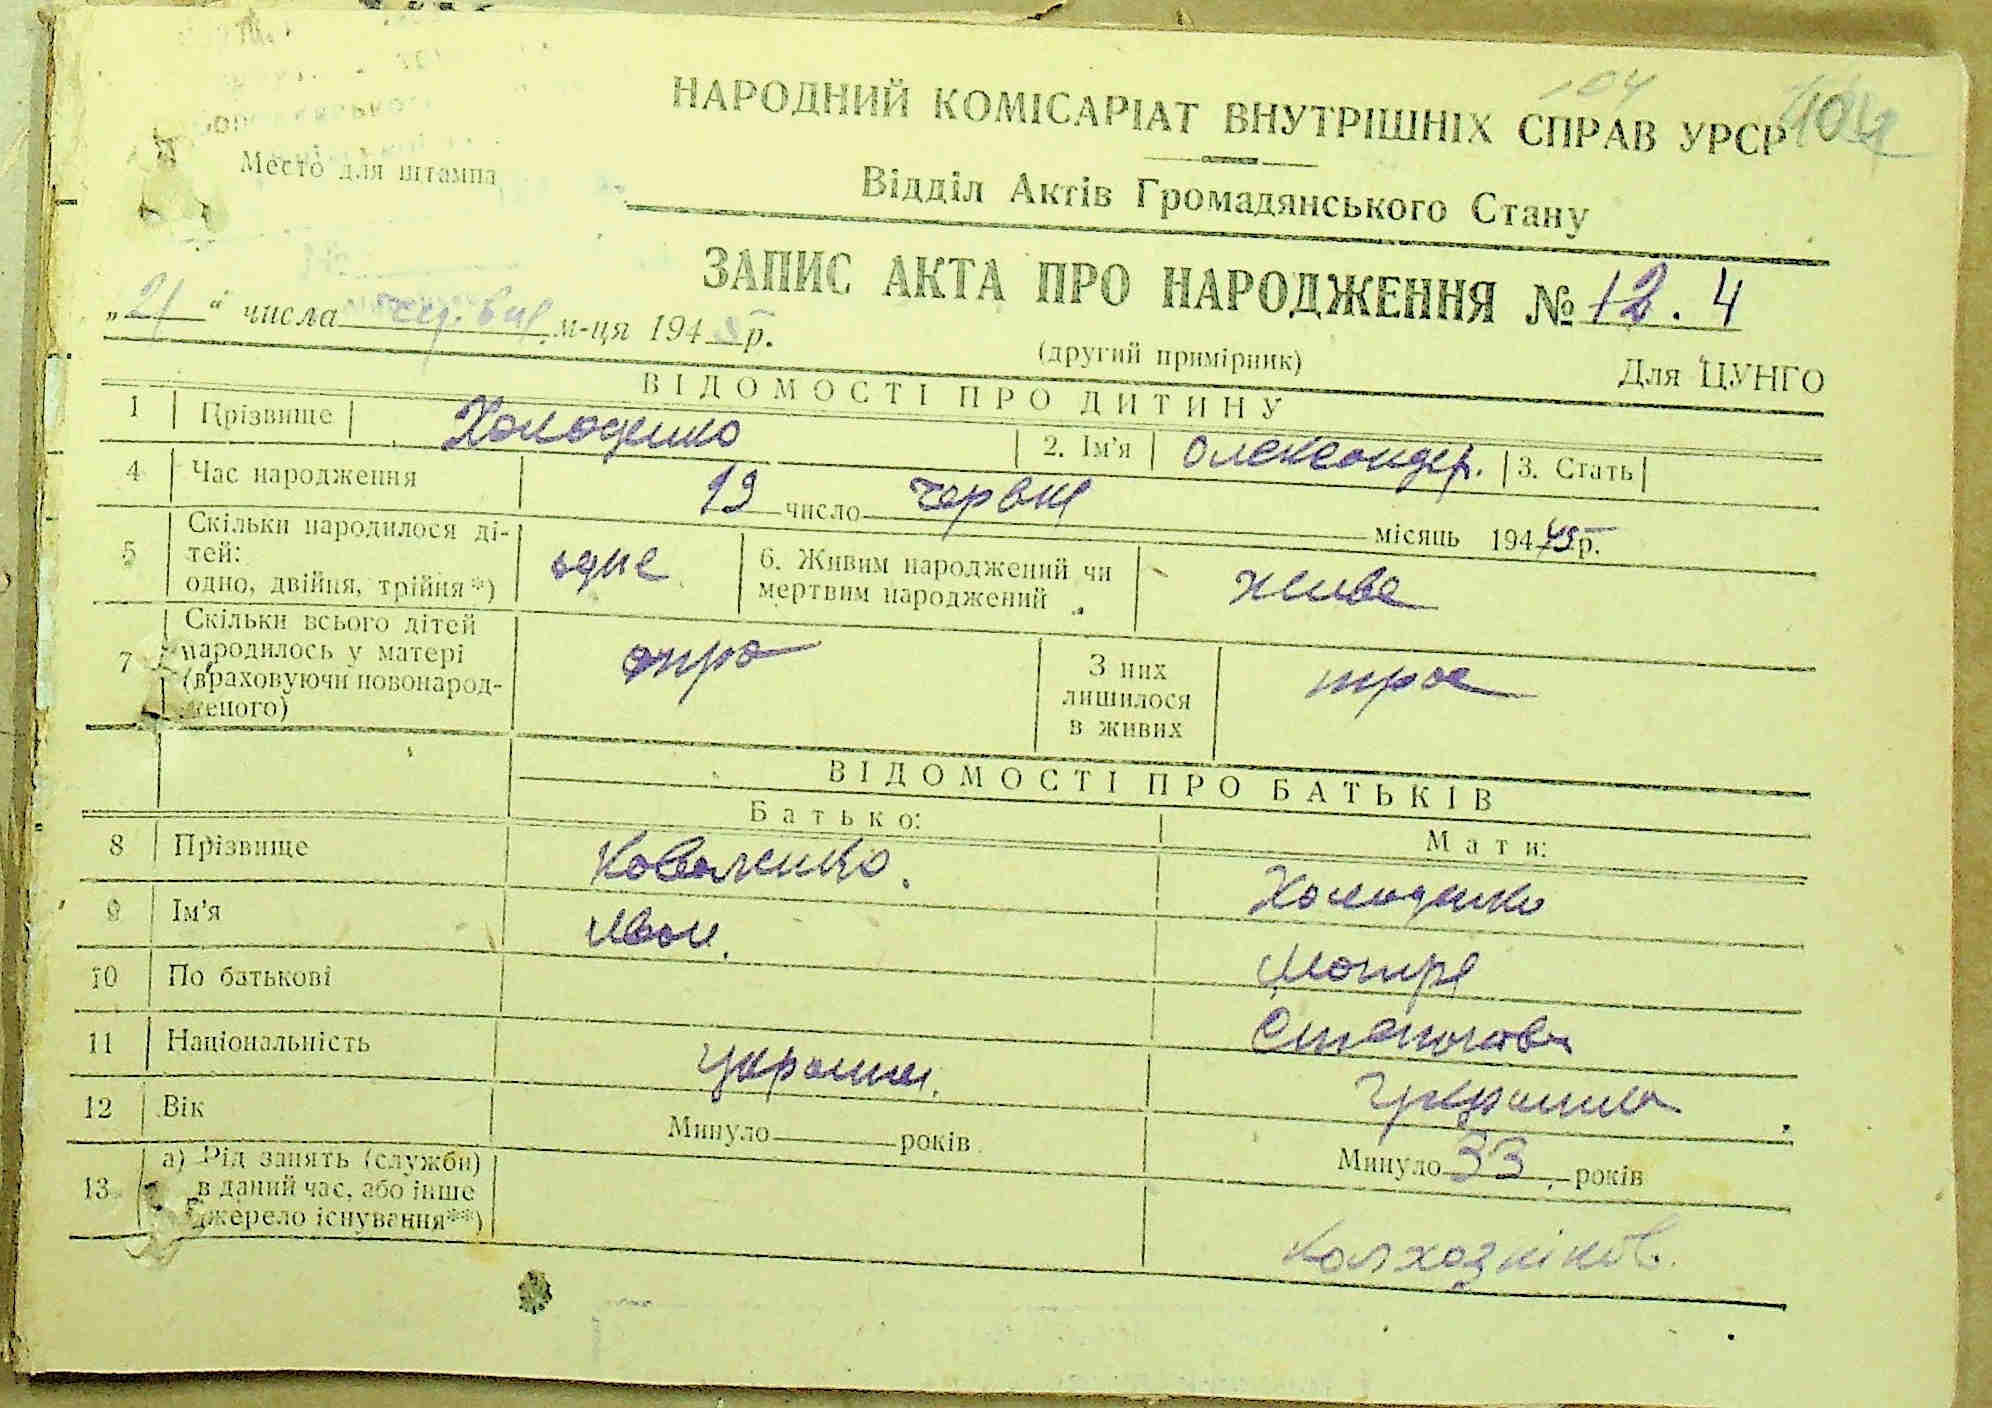 104
НАРОДНИЙ КОМІСАРІАТ ВНУТРІШНІХ СПРАВ УРСР 104
Место для штампа
Відділ Актів Громадянського Стану
ЗАПИС АКТА ПРО НАРОДЖЕННЯ № 12.4
„21“ числа червня м-ця 194 р.
(другий примірник)
Для ЦУНГО
ВІДОМОСТІ ПРО ДИТИНУ
1 Прізвище Холоденко 2. Ім'я Олександер. 3. Стать
4 Час народження 19 число червня місяць 194 р.
5 Скільки народилося ді-
тей:
одно, двійня, трійня*) одне 6. Живим народжений чи
мертвим народжений живе
7 Скільки всього дітей
народилось у матері
(враховуючи новонарод-
женого)
З них
лишилося
в живих трое
ВІДОМОСТІ ПРО БАТЬКІВ
Батько: Мати:
8 Прізвище Коваленко. Холоденко
9 Ім'я Иван. Мотря
10 По батькові Степановна
11 Національність украин. Украинка
12 Вік Минуло років Минуло 33 років
13 а) Рід занять (служби)
в даний час, або інше
джерело існування**)